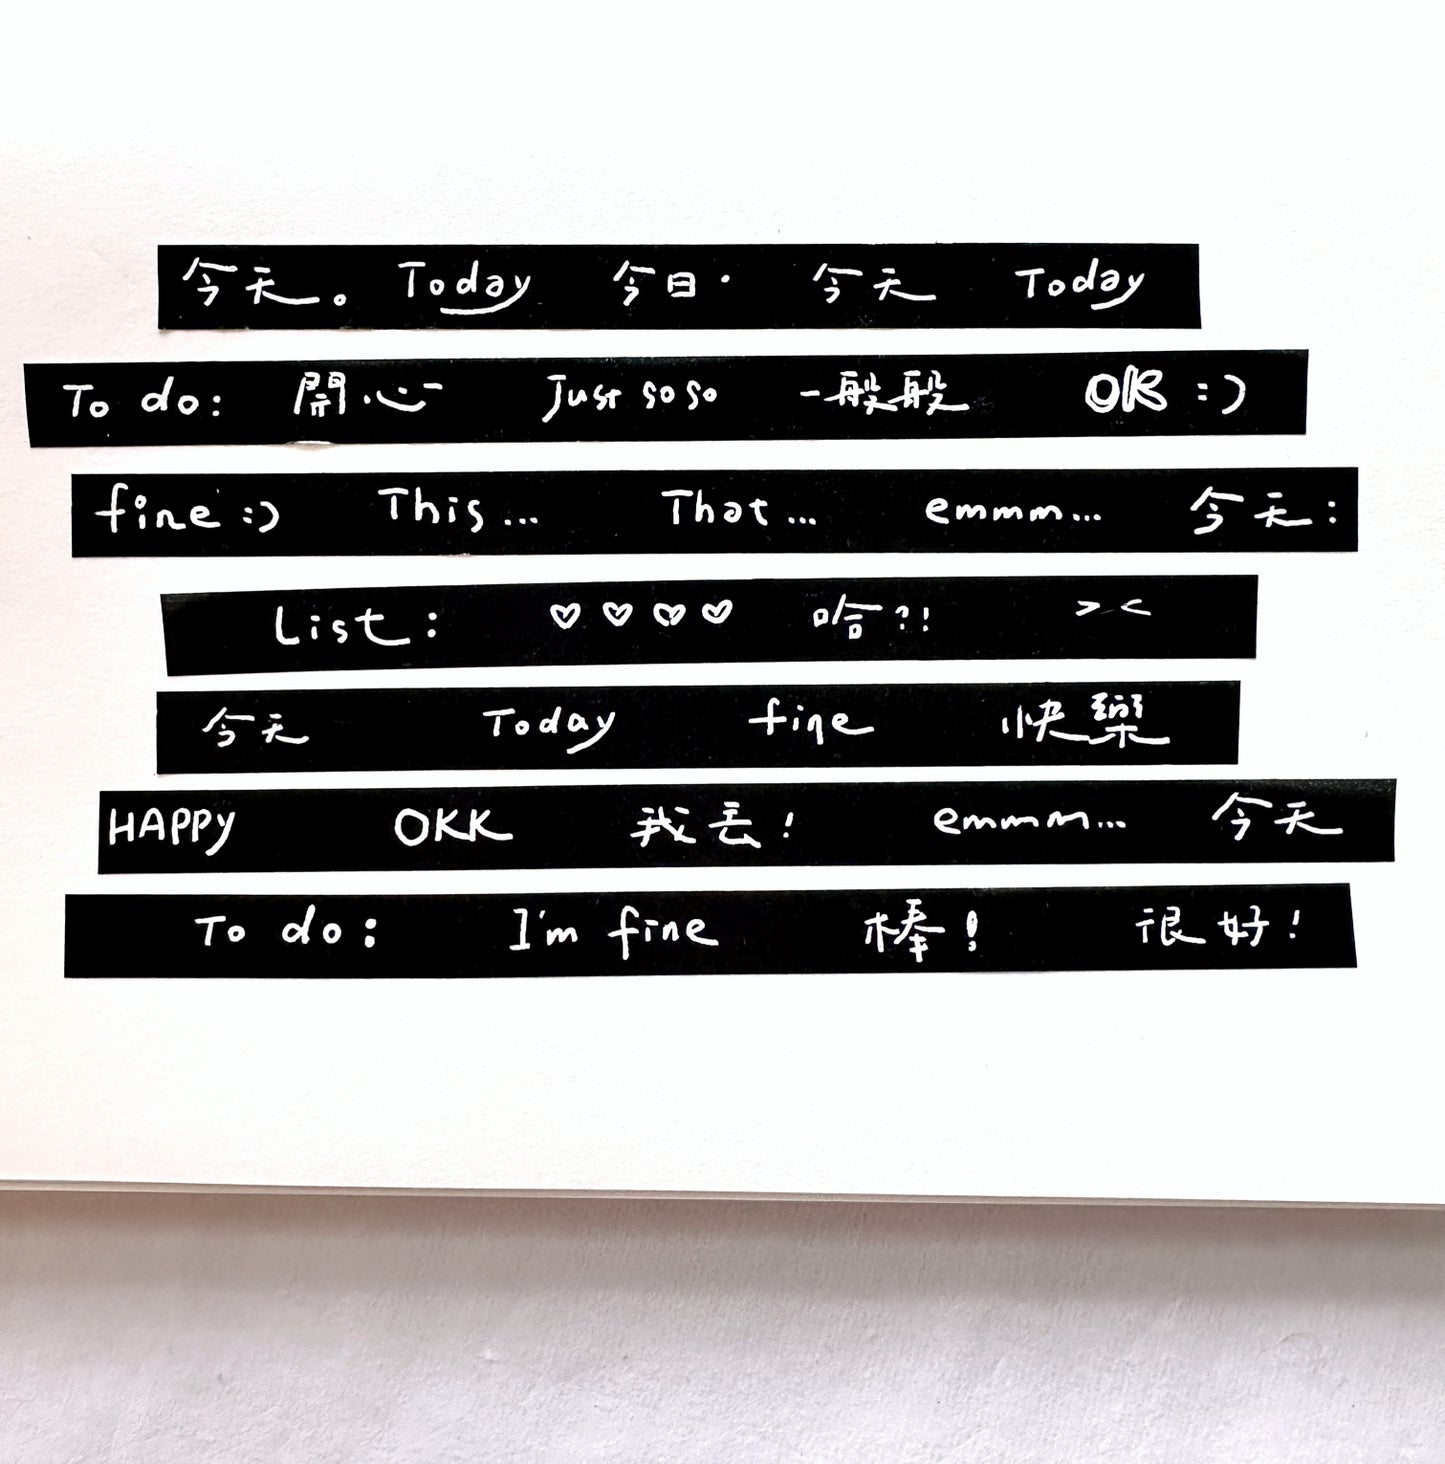 今天。 Today 今日· 今天 Today
To do: 開心 just so so 一般般 OK :)
fine :) This... That... emmm... 今天:
List: ♡♡♡♡ 哈?! > <
今天 Today fine 快樂
HAPPY OKK 我丟! emmm... 今天
To do: I'm fine 棒! 很好!